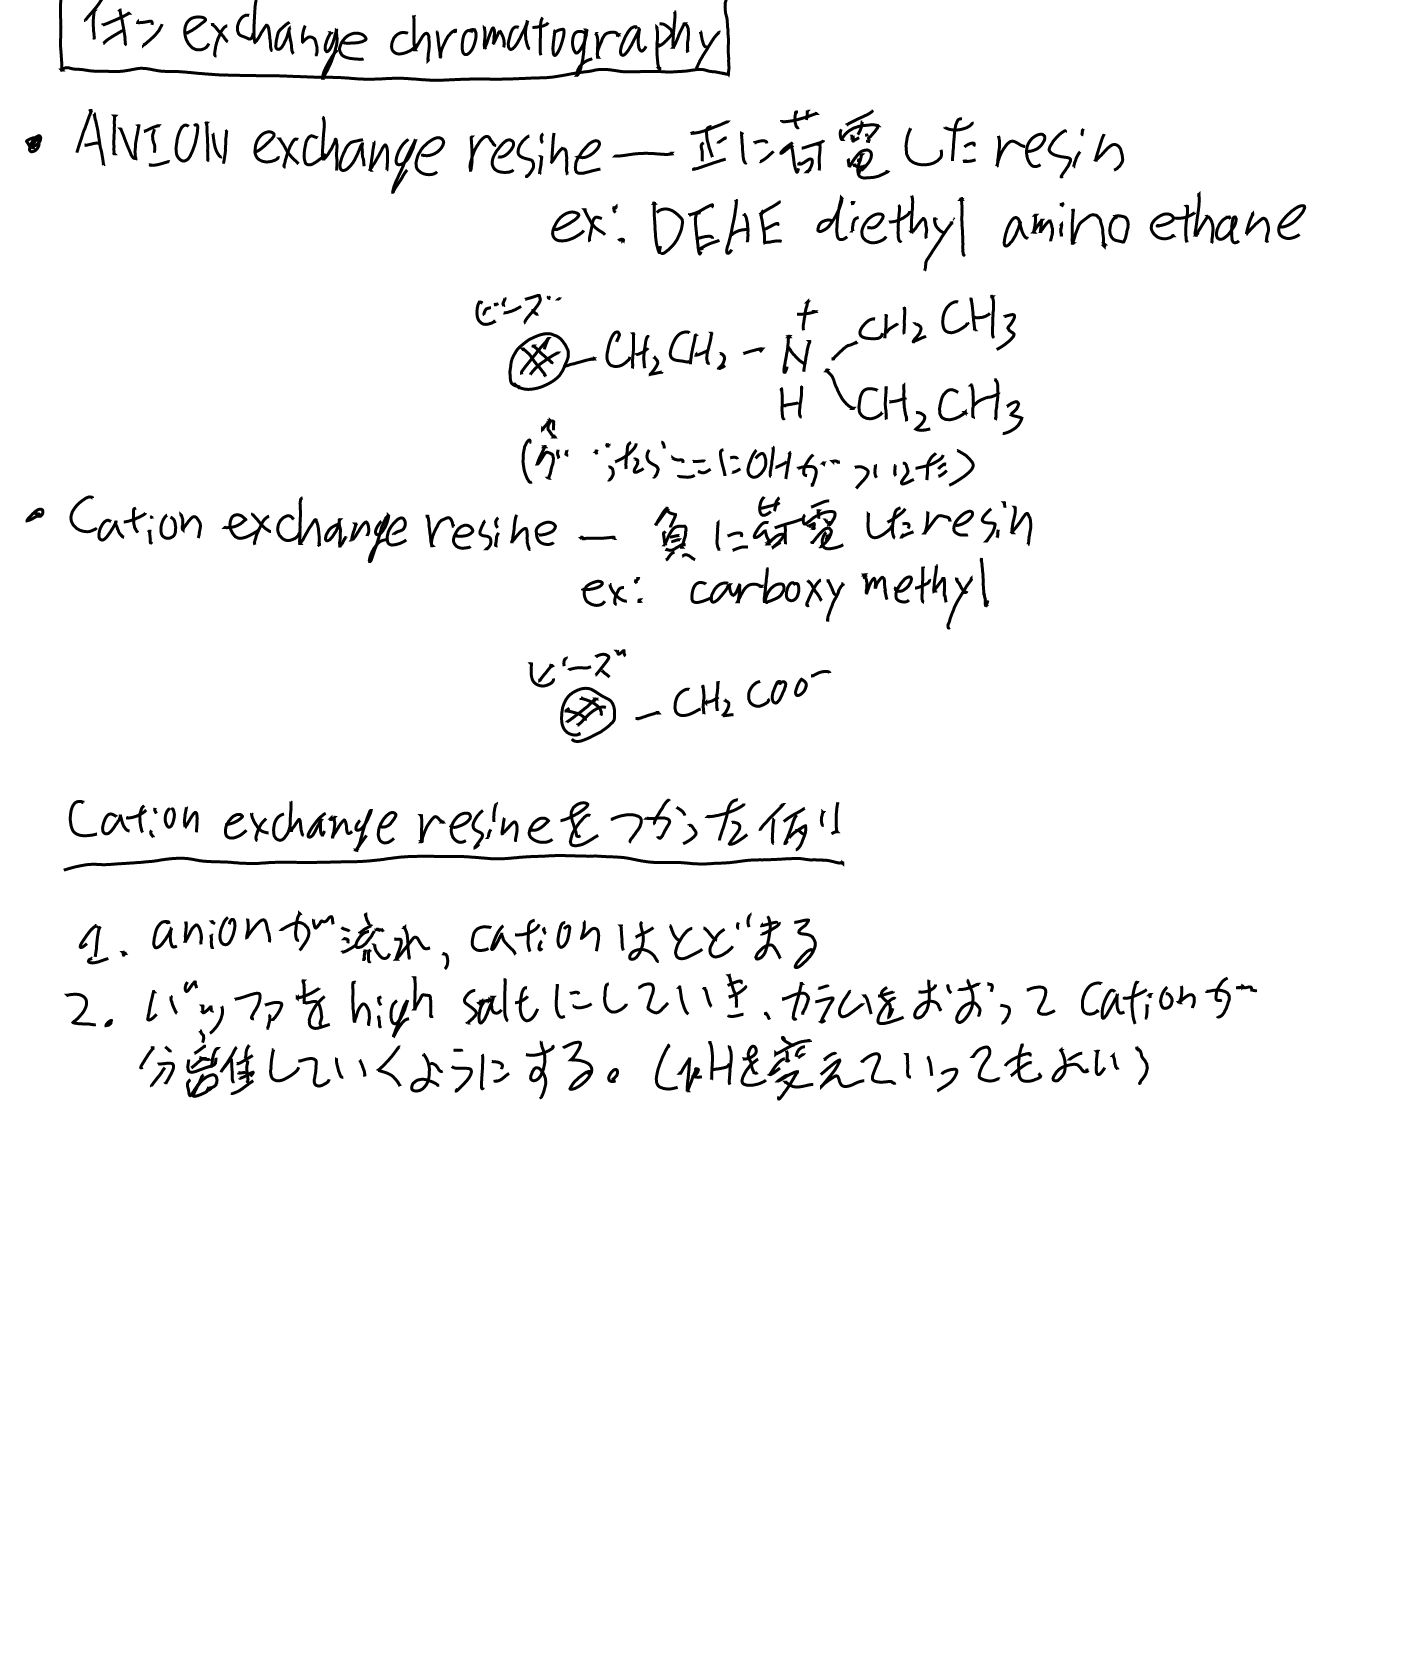 イオン exchange chromatography
• ANION exchange resine — 正に荷電した resin
ex: DEAE diethyl amino ethane
ビーズ
-CH₂CH₂-N⁺H
CH₂CH₃
CH₂CH₃
ここにOHがついた)
• Cation exchange resine — 負に荷電した resin
ex: carboxy methyl
ビーズ
-CH₂COO⁻
Cation exchange resineをつかった例
1. anionが流れ, cationはとどまる
2. バッファを high saltにしていき、カラムをおおって cationが
分離していくようにする。(pHを変えていってもよい)